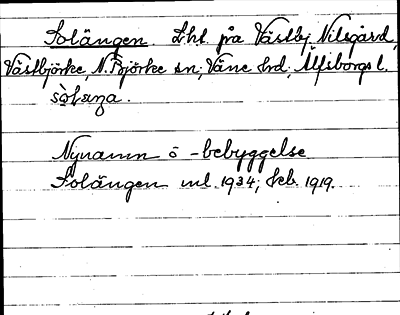 Solängen. Lht. på Västbj. Nilsgård,
Västbjörke, N. Björke sn; Väne hd; Älfsborgs l.
sòlæŋa.
Nynamn o -bebyggelse
Solängen ml. 1934; beb. 1919.